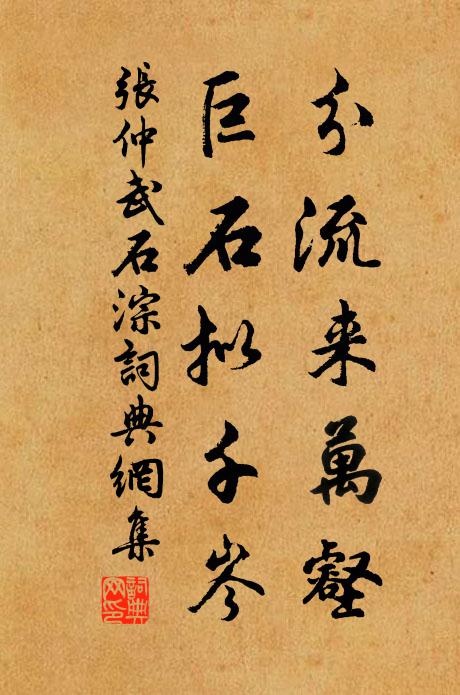 分流来萬壑
巨石拟千岑
張仲武石淙詞典網集
詞典网印